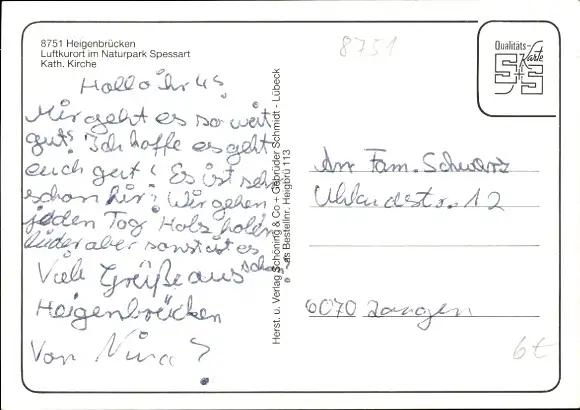 8751 Heigenbrücken
Luftkurort im Naturpark Spessart
Kath. Kirche
8751
Qualitäts-Karte
S+S
Hallo ihr 4!
Mir geht es so weit
gut! Ich hoffe es geht
euch gut! Es ist sehr
schön hir! Wir gehen
jeden Tag Holz holen
lieder aber sonst ist es
schön!
Viele Grüße aus
Heigenbrücken
Von Nina!
Herst. u. Verlag Schöning & Co + Gebrüder Schmidt - Lübeck
Bestellnr. Heigbrü 113
An Fam. Schwarz
Uhlandstr. 12
6070 Langen
6t